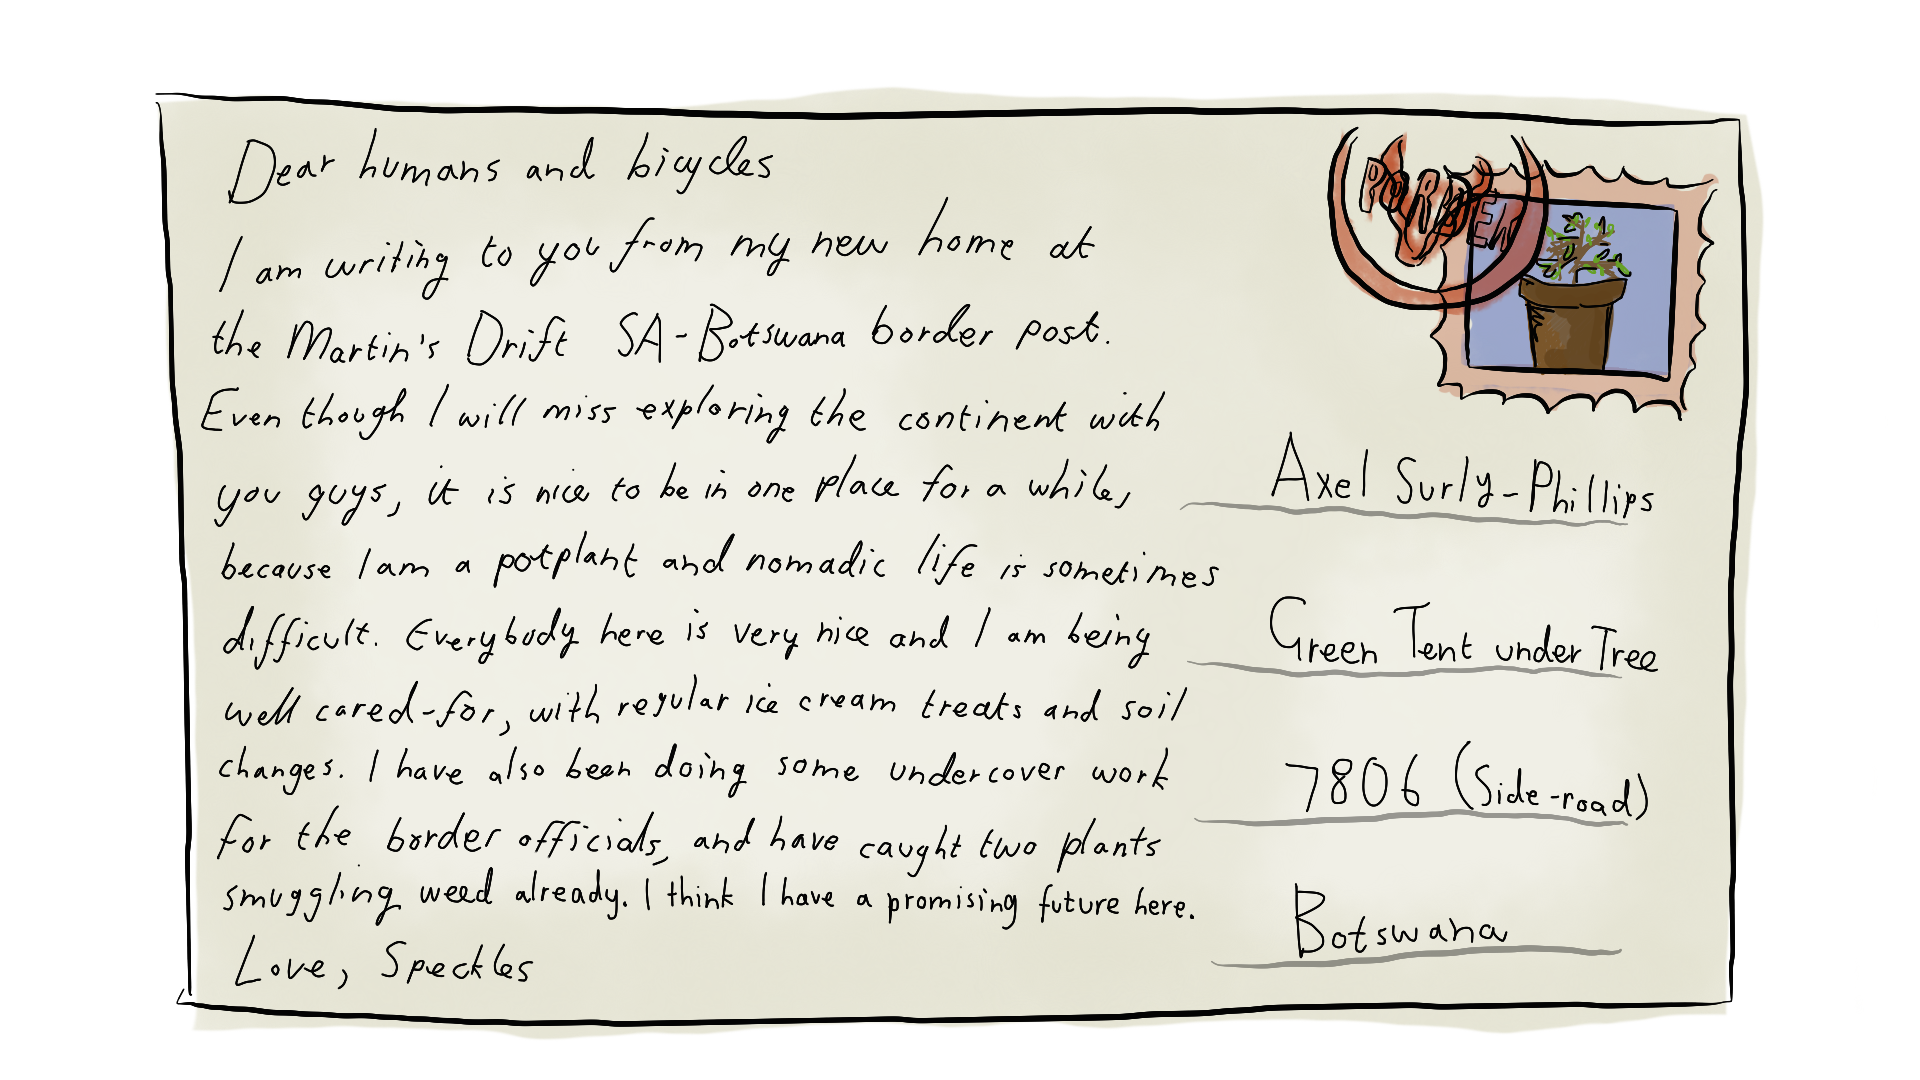 Dear humans and bicycles
I am writing to you from my new home at
the Martin's Drift SA-Botswana border post.
Even though I will miss exploring the continent with
you guys, it is nice to be in one place for a while,
because I am a potplant and nomadic life is sometimes
difficult. Everybody here is very nice and I am being
well cared-for, with regular ice cream treats and soil
changes. I have also been doing some undercover work
for the border officials, and have caught two plants
smuggling weed already. I think I have a promising future here.
Love, Speckles
Axel Surly-Phillips
Green Tent under Tree
7806 (Side-road)
Botswana